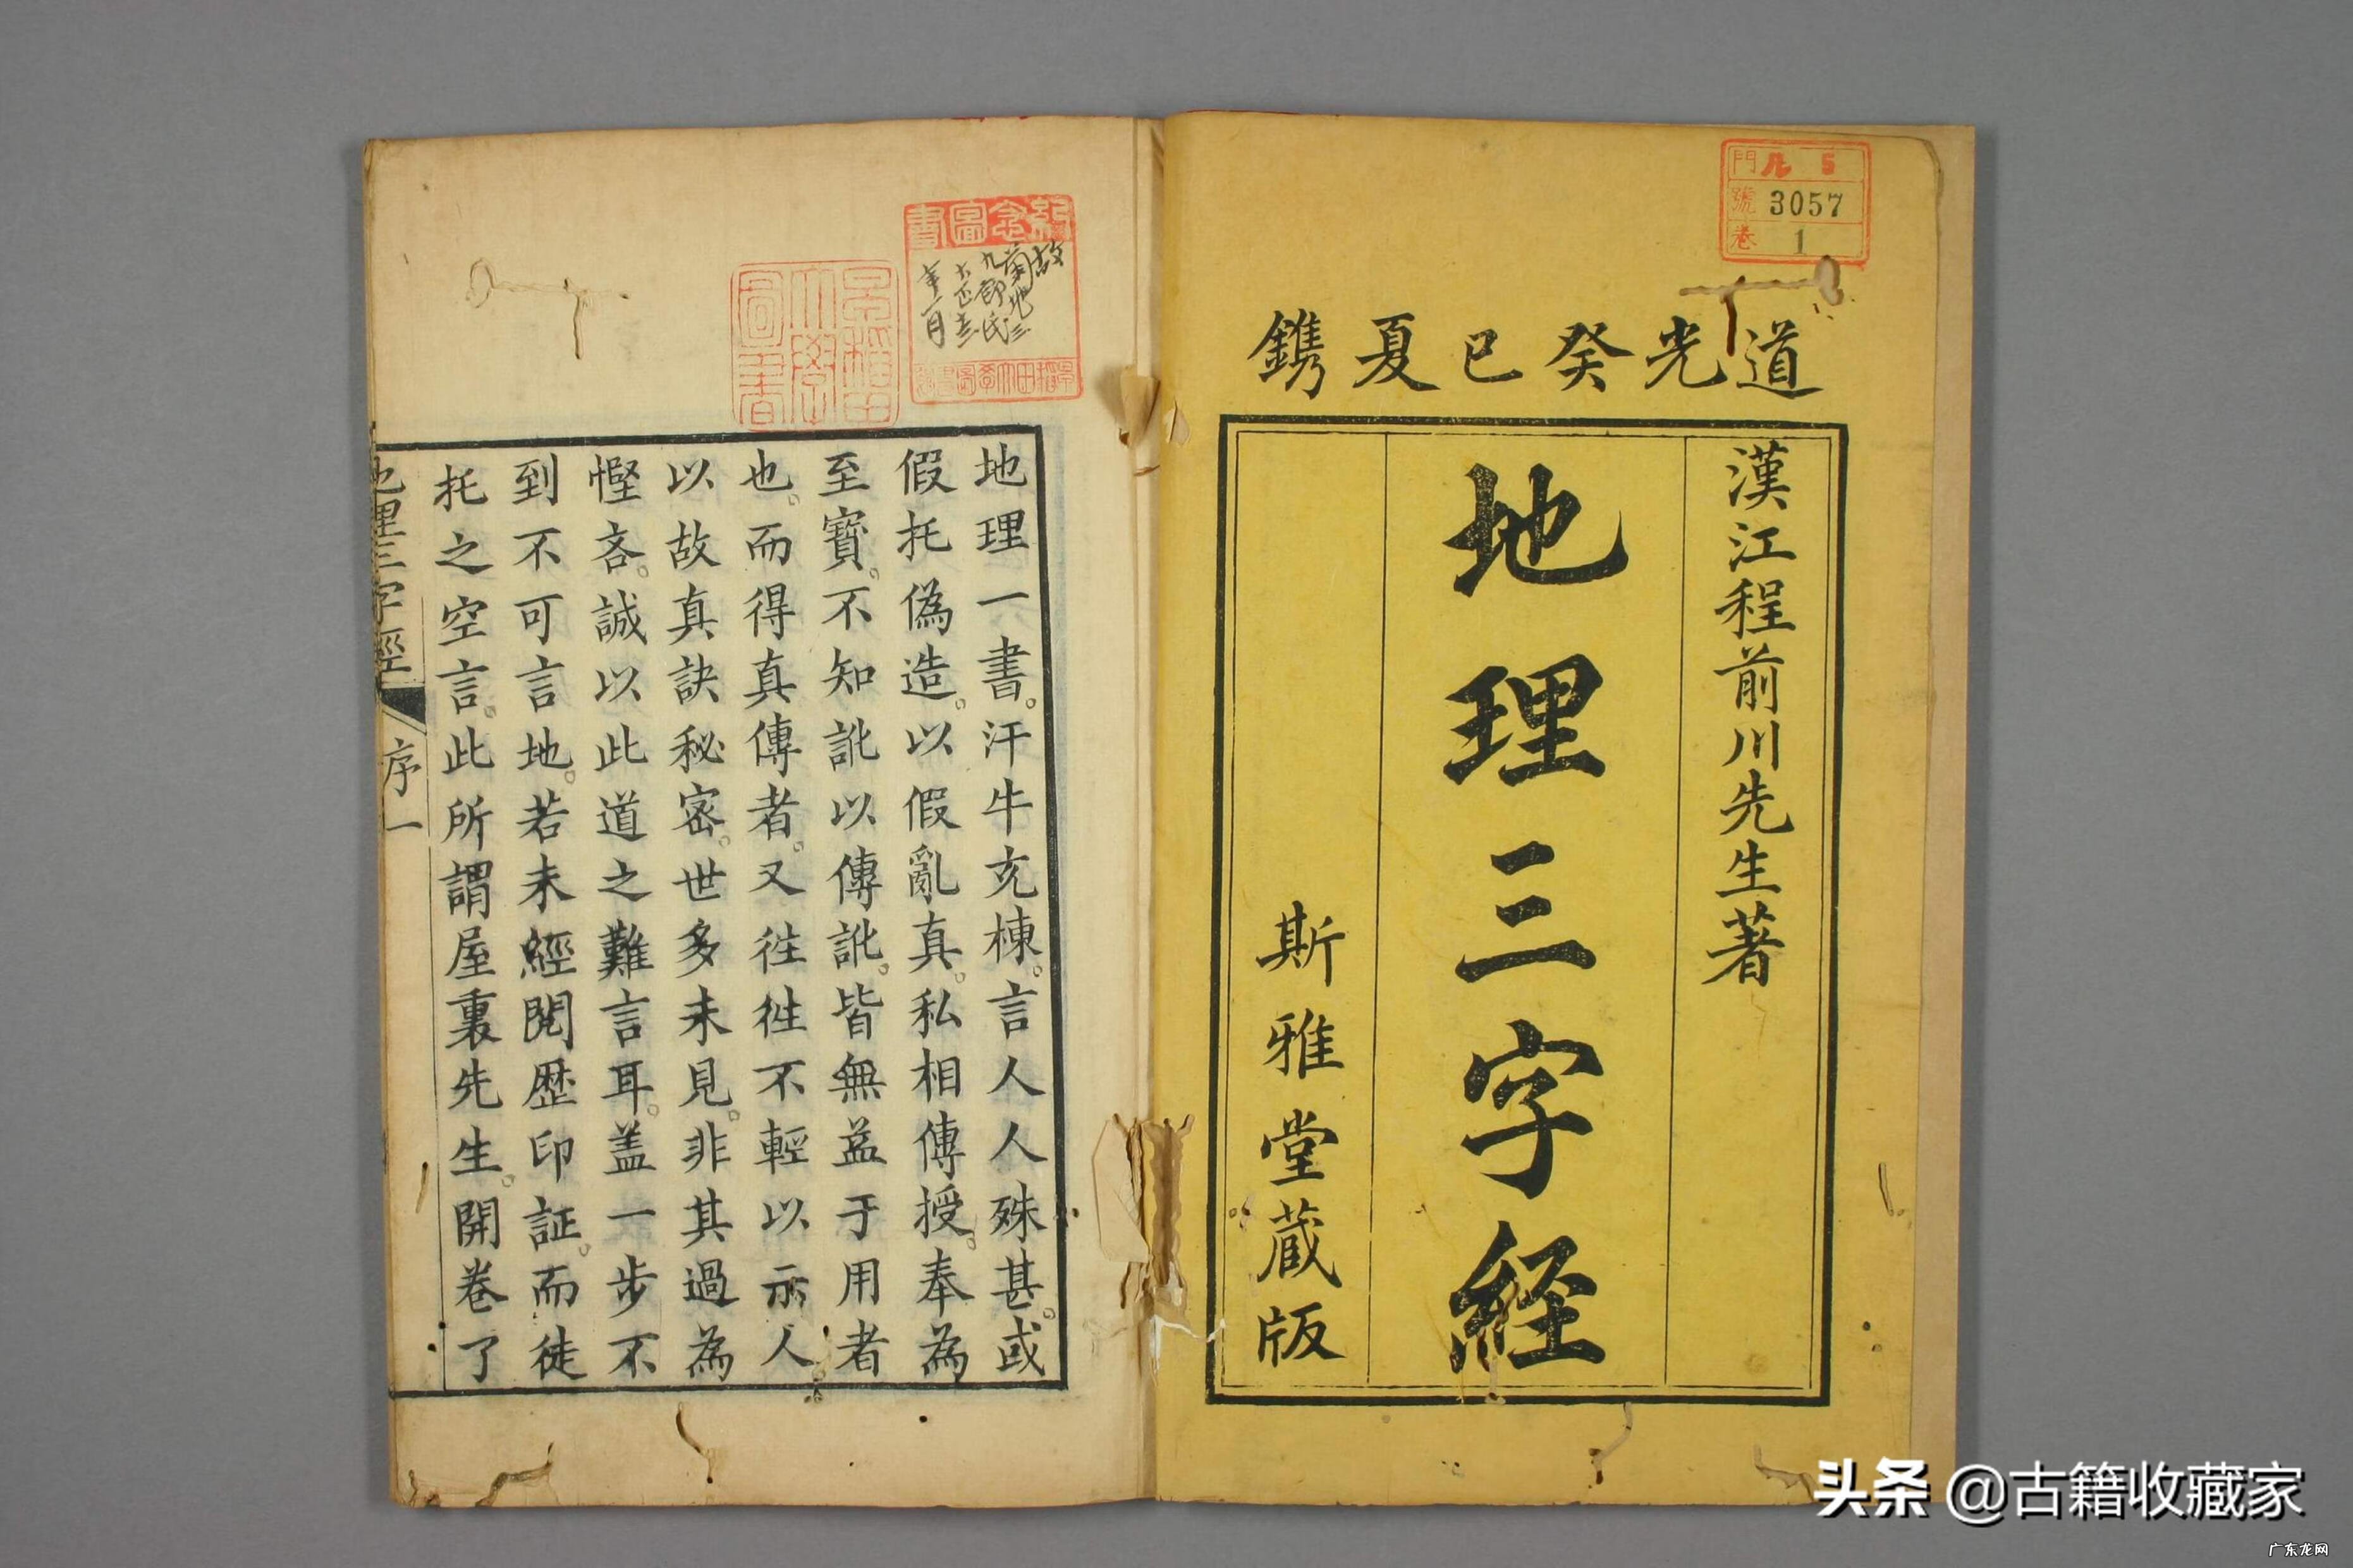 道光癸巳夏鐫
漢江程前川先生著
地理三字経
斯雅堂蔵版
門 ル 5
號 3057
卷 1
紀念圖書
故
菊地三
九郎氏
大正
年一月
早稲田大學圖書
地理一書。汗牛充棟。言人人殊甚。或
假托偽造。以假亂真。私相傳授。奉為
至寶。不知訛以傳訛。皆無益于用者
也。而得真傳者。又徃徃不輕以示人
以故真訣秘密。世多未見。非其過為
慳吝。誠以此道之難言耳。盖一步不
到不可言地。若未經閱歷印証。而徒
托之空言。此所謂屋裏先生。開卷了
地理三字經
序一
头条 @古籍收藏家
广东龙网